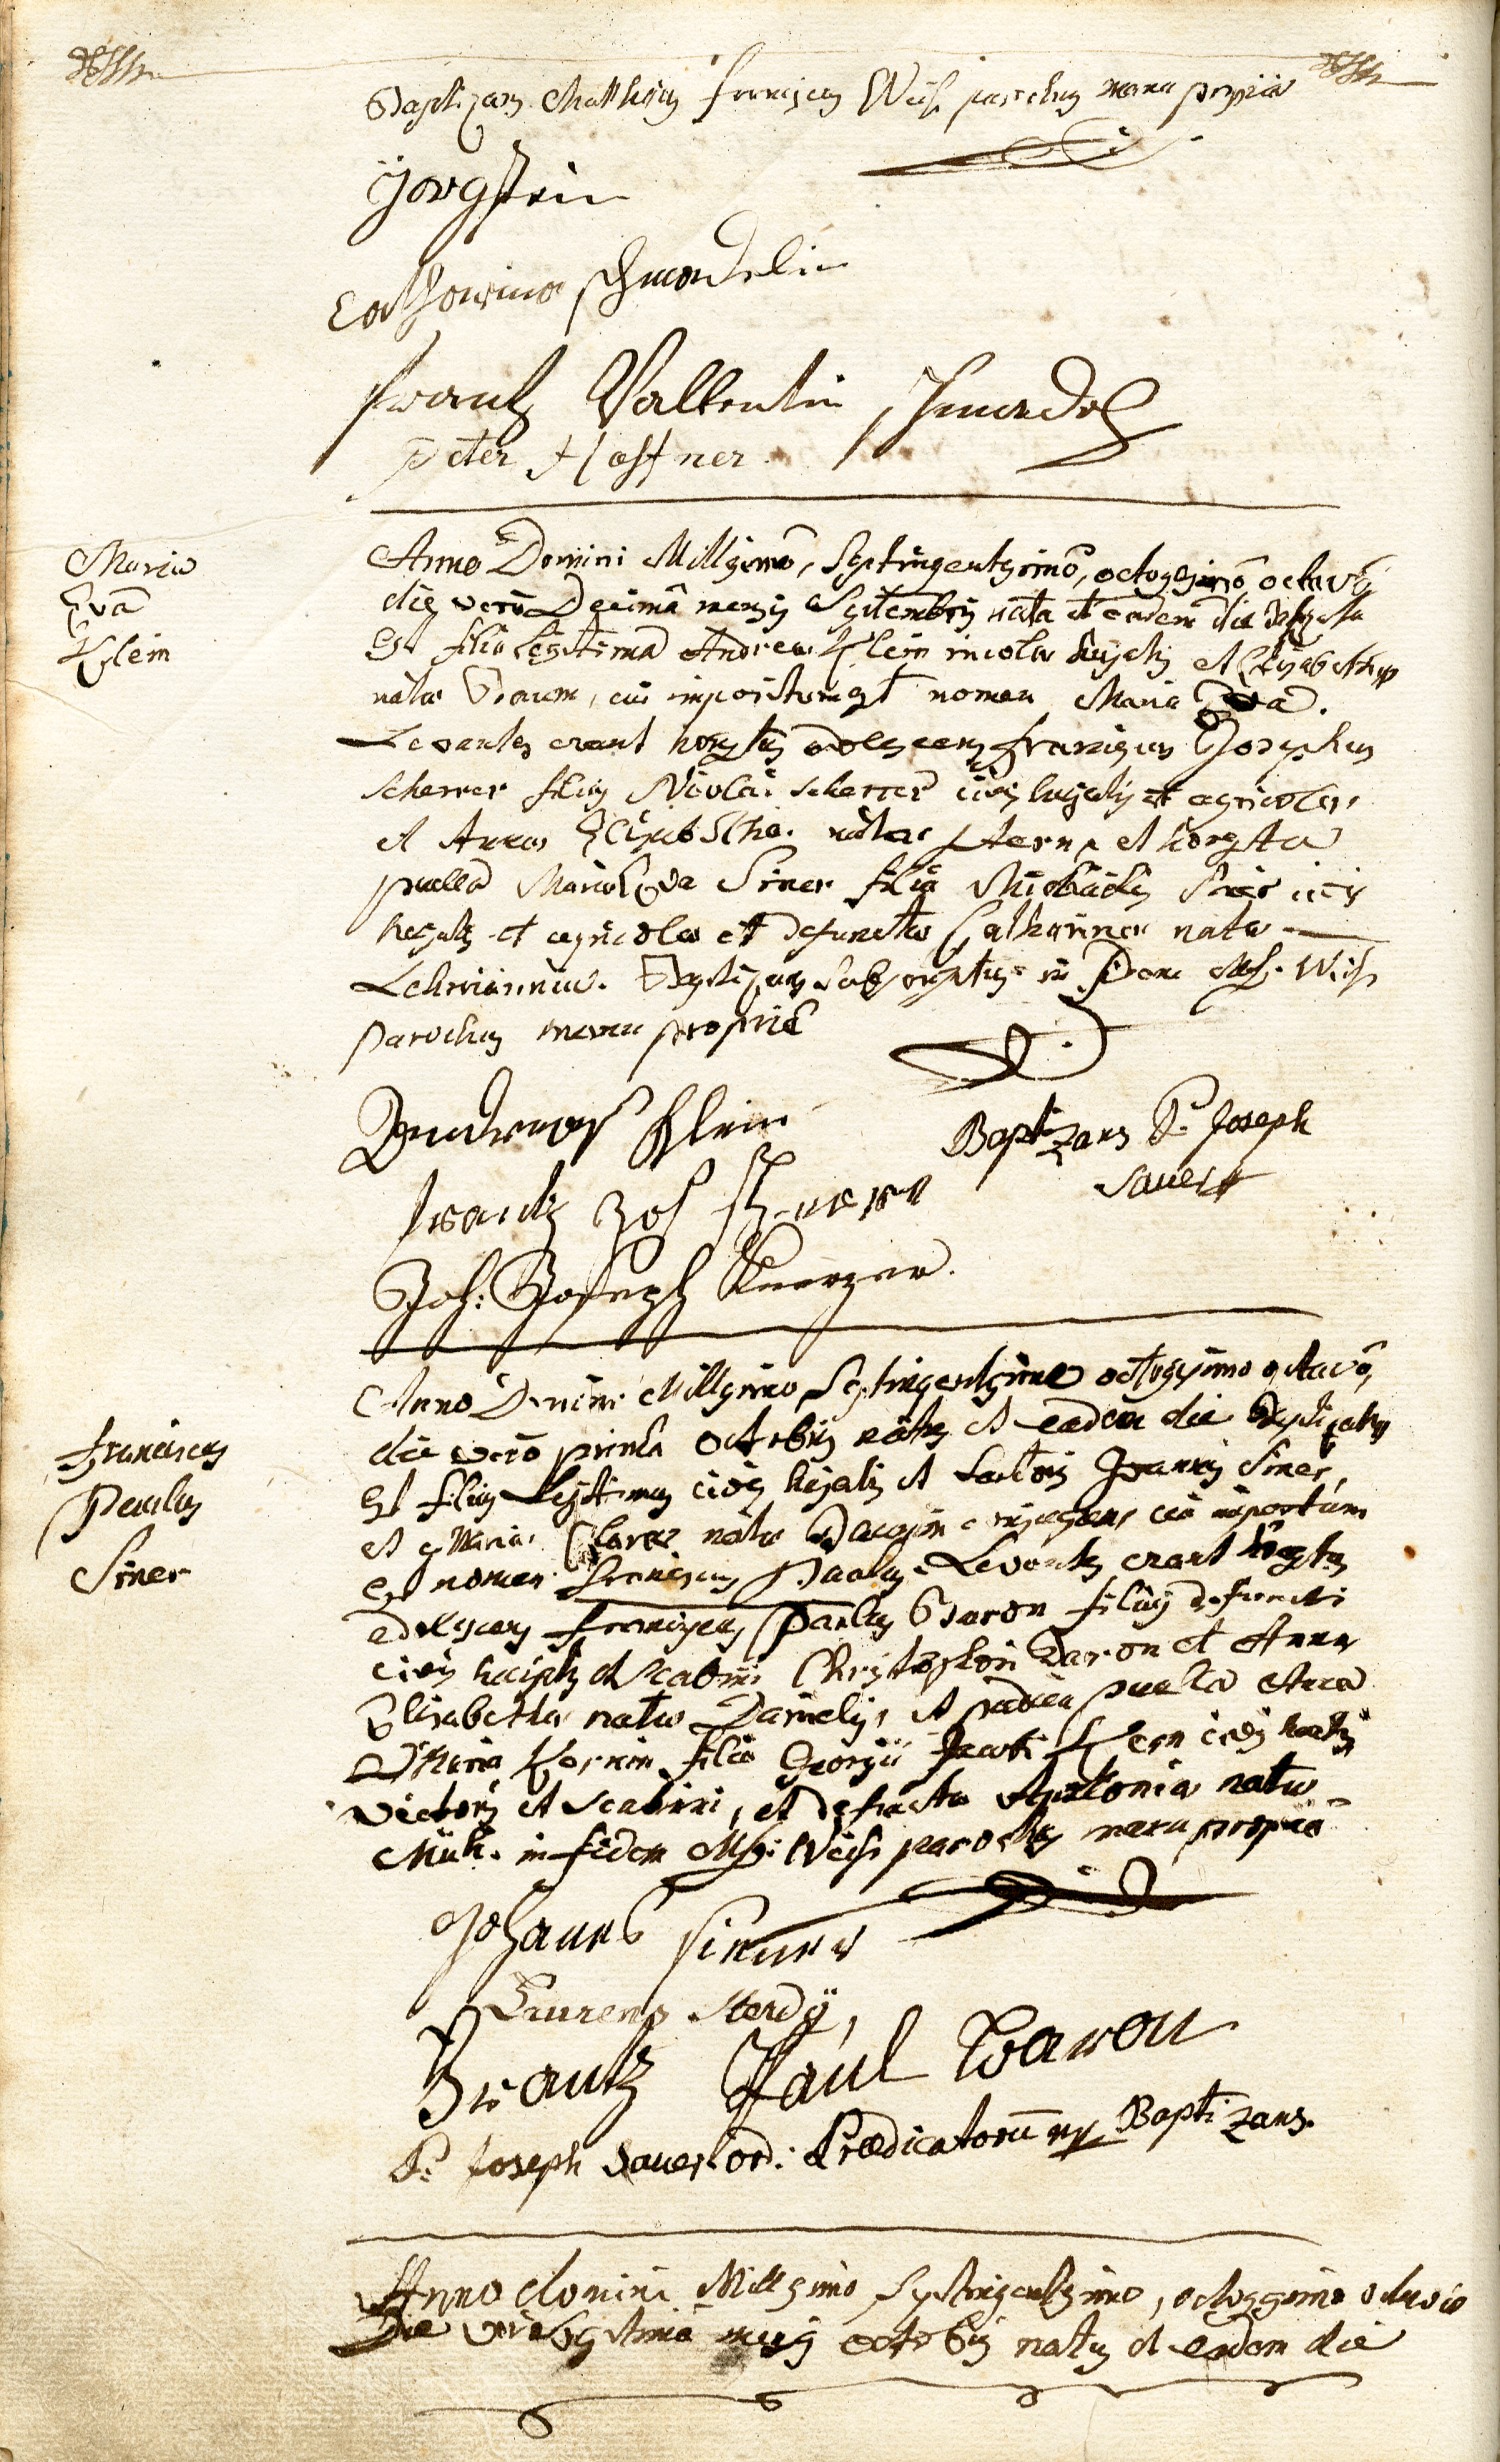 Baptizans Matthias Franciscus Weis parochus manu propria
Görg Stein
Catharina schmendelin
Frantz Vallentin schmendel
Peter Hoffner
Maria
Eva
Klein
Anno Domini Millesimo, Septingentesimo, octogesimo octavo
die vero Decima mensis Septembris nata et eadem die baptizata
est filia legitima Andreae Klein incolae hujatis et Elisabethae
natae Braum, cui impositum est nomen Maria Eva.
Levantes erant honestus adolescens Franciscus Josephus
Scherrer filius Nicolai Scherrer civis hujatis et agricolae,
et Annae Elisabetha natae et honesta
puella Maria Eva Siner filia Michaelis Siner civis
hujatis et agricolae et defunctae Catharinae natae
Lehmännin. Baptizans subscriptus in Fidem Mf. Weis
parochus manu propria
Andreas Klein
Baptizans P. Joseph
Sauer
Frantz Jos scherer
Joh: Joseph Kuerzer.
Franciscus
Paulus
Siner
Anno Domini Millesimo Septingentesimo octogesimo octavo,
die vero prima octobris natus et eadem die Baptizatus
est filius Legitimus civis hujatis et sartoris Joannis Siner,
et Mariae Clarae natae conjugum, cui impositum
est nomen Franciscus Paulus. Levantes erant honestus
adolescens Franciscus Paulus Baron filius defuncti
civis hujatis et scabini Christophori Baron et Annae
Elisabetha natae Danielis, et pudica puella Anna
Maria Kernin filia Georgii Jacobi Kern civis hujatis
victoris et scabini, et defuncta Apolonia natae
Müh. in fidem Mf: Weis parochus manu propria
Johanes sinner
Laurens Herdÿ,
Frantz Paul Baron
P: Joseph Sauer ord: Praedicatorum Baptizans.
Anno domini Millesimo Septingentesimo, octogesimo octavo
Die vero mensis octobris natus et eadem die